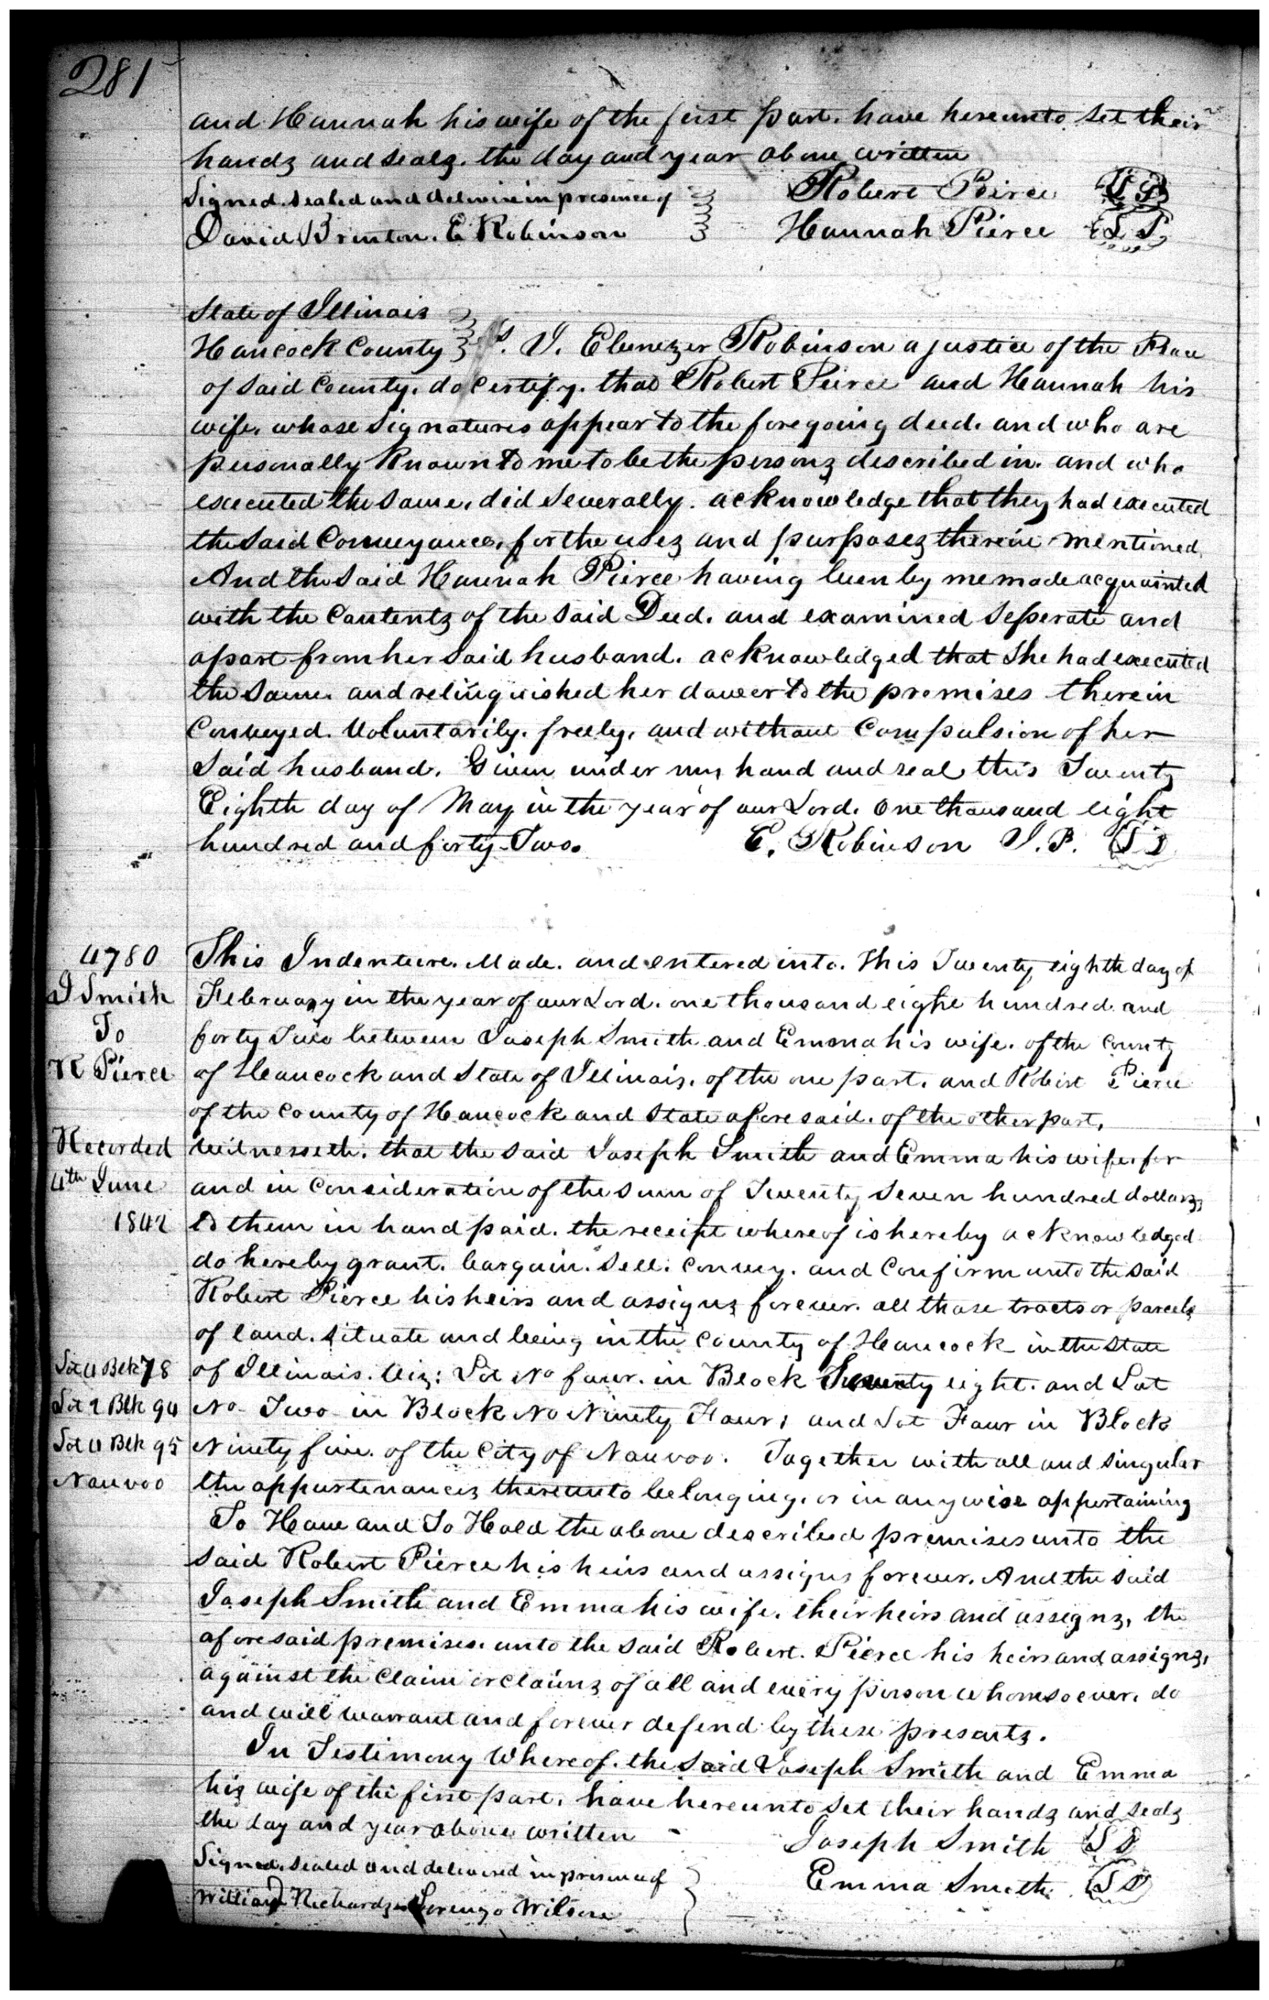 281
and Hannah his wife of the first part. have hereunto set their
hands and seals. the day and year above written
Signed. sealed and deliver in presence of Robert Peirce LS
David Brinton. E Robinson Hannah Pierce LS
State of Illinois
Hancock County ss. I. Ebenezer Robinson a justice of the Peace
of said County. do certify. that Robert Peirce and Hannah his
wife. whose signatures appear to the foregoing deed. and who are
personally known to me to be the persons described in. and who
executed the same. did severally. acknowledge that they had executed
the said Conveyance. for the uses and purposes therein mentioned.
And the said Hannah Pierce having been by me made acquainted
with the contents of the said Deed. and examined seperate and
apart from her said husband. acknowledged that she had executed
the same. and relinquished her dower to the premises therein
conveyed. Voluntarily. freely. and without compulsion of her
said husband. Given under my hand and seal this Twenty
Eighth day of May in the year of our Lord. one thousand eight
hundred and forty-Two. E. Robinson J. P. LS
4780
J Smith
To
R Pierce
Recorded
4th June
1842
This Indenture. Made. and entered into. this Twenty eighth day of
February in the year of our Lord. one thousand eight hundred and
forty Two between Joseph Smith and Emma his wife. of the county
of Hancock and State of Illinois. of the one part. and Robert Pierce
of the county of Hancock and State aforesaid. of the other part.
Witnesseth. that the said Joseph Smith and Emma his wife. for
and in consideration of the sum of Twenty Seven hundred dollars,
to them in hand paid. the receipt whereof is hereby acknowledged
do hereby grant. bargain. sell. convey. and confirm unto the said
Robert Pierce his heirs and assigns forever. all those tracts or parcels
of land. situate and being in the county of Hancock in the state
Lot 4 Blk 78
Lot 2 Blk 94
Lot 4 Blk 95
Nauvoo
of Illinois. Viz: Lot No four. in Block Seventy eight. and Lot
No. Two in Block No Ninety Four, and Lot Four in Block
Ninety five. of the City of Nauvoo. Together with all and singular
the appurtenances thereunto belonging. or in any wise appertaining
To Have and To Hold the above described premises unto the
said Robert Pierce his heirs and assigns forever. And the said
Joseph Smith and Emma his wife. their heirs and assigns, the
aforesaid premises. unto the said Robert. Pierce his heirs and assigns,
against the claim or claims of all and every person whomsoever. do
and will warrant and forever defend by these presents.
In Testimony Whereof. the said Joseph Smith and Emma
his wife of the first part. have hereunto set their hands and seals
the day and year above written Joseph Smith LS
Signed. sealed and delivered in presence of Emma Smith LS
William Richards Lorenzo Wilson